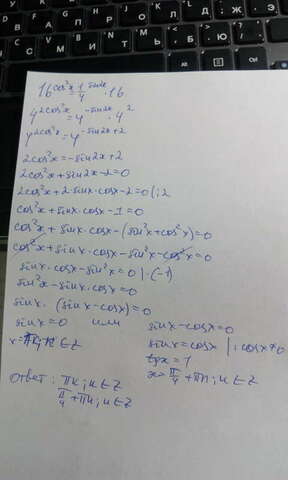 16^cos²x = 1/4^sin2x · 16
4^2cos²x = 4^-sin2x · 4²
4^2cos²x = 4^-sin2x+2
2cos²x = -sin2x+2
2cos²x + sin2x - 2 = 0
2cos²x + 2·sinx·cosx - 2 = 0 |:2
cos²x + sinx·cosx - 1 = 0
cos²x + sinx·cosx - (sin²x + cos²x) = 0
cos²x + sinx·cosx - sin²x - cos²x = 0
sinx·cosx - sin²x = 0 |·(-1)
sin²x - sinx·cosx = 0
sinx·(sinx - cosx) = 0
sinx = 0 или sinx - cosx = 0
x = πn, n ∈ Z sinx = cosx |: cosx ≠ 0
tgx = 1
x = π/4 + πn; n ∈ Z
ответ: πn; n ∈ Z
π/4 + πn; n ∈ Z